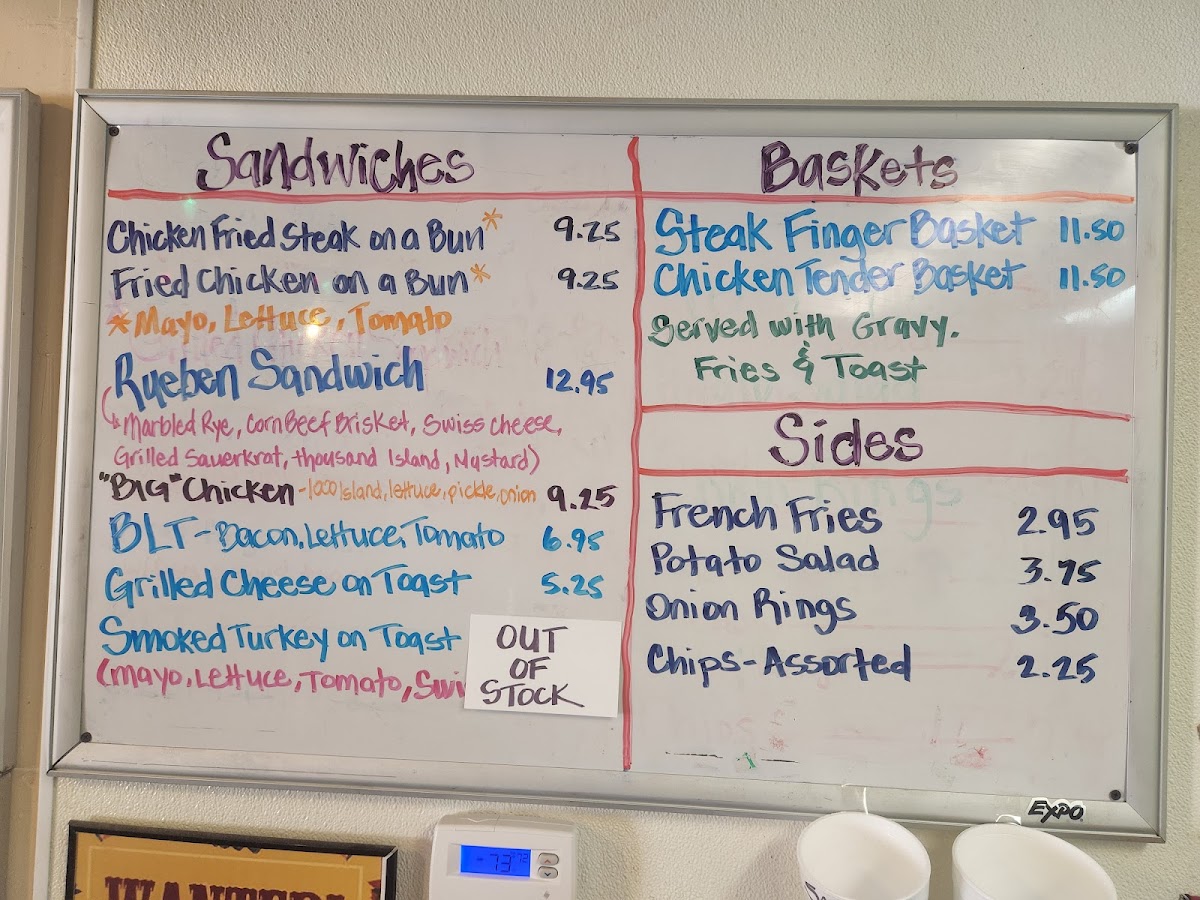 Sandwiches
Chicken Fried Steak on a Bun* 9.25
Fried Chicken on a Bun* 9.25
*Mayo, Lettuce, Tomato
Rueben Sandwich 12.95
(Marbled Rye, Corn Beef Brisket, Swiss Cheese,
Grilled Sauerkrat, thousand Island, Mustard)
"BIG" Chicken - 1000 Island, lettuce, pickle, onion 9.25
BLT - Bacon, Lettuce, Tomato 6.95
Grilled Cheese on Toast 5.25
Smoked Turkey on Toast
(Mayo, Lettuce, Tomato, Swi
OUT
OF
STOCK
Baskets
Steak Finger Basket 11.50
Chicken Tender Basket 11.50
Served with Gravy.
Fries & Toast
Sides
French Fries 2.95
Potato Salad 3.75
Onion Rings 3.50
Chips - Assorted 2.25
EXPO
WANTED!
73